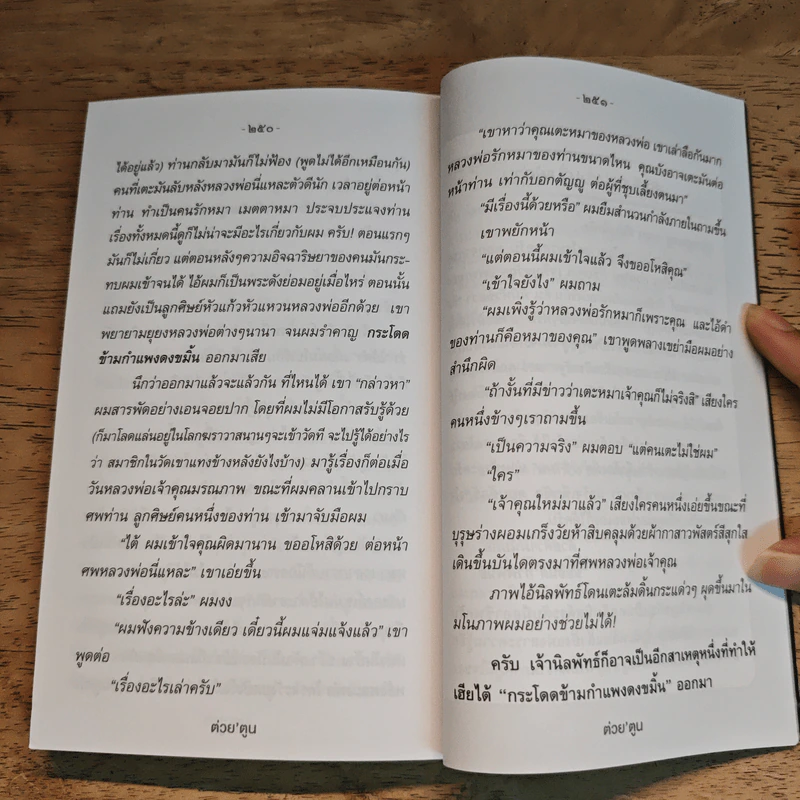 -๒๕๐-
ได้อยู่แล้ว) ท่านกลับมามันก็ไม่ฟ้อง (พูดไม่ได้อีกเหมือนกัน)
คนที่เตะมันลับหลังหลวงพ่อนี่แหละตัวดีนัก เวลาอยู่ต่อหน้า
ท่าน ทำเป็นคนรักหมา เมตตาหมา ประจบประแจงท่าน
เรื่องทั้งหมดนี้ดูก็ไม่น่าจะมีอะไรเกี่ยวกับผม ครับ! ตอนแรกๆ
มันก็ไม่เกี่ยว แต่ตอนหลังๆความอิจฉาริษยาของคนมันกระ-
ทบผมเข้าจนได้ ไอ้ผมก็เป็นพระดังย่อมอยู่เมื่อไหร่ ตอนนั้น
แถมยังเป็นลูกศิษย์หัวแก้วหัวแหวนหลวงพ่ออีกด้วย เขา
พยายามยุยงหลวงพ่อต่างๆนานา จนผมรำคาญ กระโดด
ข้ามกำแพงดงขมิ้น ออกมาเสีย
นึกว่าออกมาแล้วจะแล้วกัน ที่ไหนได้ เขา “กล่าวหา”
ผมสารพัดอย่างเอนจอยปาก โดยที่ผมไม่มีโอกาสรับรู้ด้วย
(ก็มาโลดแล่นอยู่ในโลกฆราวาสนานๆจะเข้าวัดที จะไปรู้ได้อย่างไร
ว่า สมาชิกในวัดเขาแทงข้างหลังยังไงบ้าง) มารู้เรื่องก็ต่อเมื่อ
วันหลวงพ่อเจ้าคุณมรณภาพ ขณะที่ผมคลานเข้าไปกราบ
ศพท่าน ลูกศิษย์คนหนึ่งของท่าน เข้ามาจับมือผม
“ไต้ ผมเข้าใจคุณผิดมานาน ขออโหสิด้วย ต่อหน้า
ศพหลวงพ่อนี่แหละ” เขาเอ่ยขึ้น
“เรื่องอะไรล่ะ” ผมงง
“ผมฟังความข้างเดียว เดี๋ยวนี้ผมแจ่มแจ้งแล้ว” เขา
พูดต่อ
“เรื่องอะไรเล่าครับ”
ต่วย’ตูน
-๒๕๑-
“เขาหาว่าคุณเตะหมาของหลวงพ่อ เขาเล่าลือกันมาก
หลวงพ่อรักหมาของท่านขนาดไหน คุณบังอาจเตะมันต่อ
หน้าท่าน เท่ากับอกตัญญู ต่อผู้ที่ชุบเลี้ยงตนมา”
“มีเรื่องนี้ด้วยหรือ” ผมยืมสำนวนกำลังภายในถามขึ้น
เขาพยักหน้า
“แต่ตอนนี้ผมเข้าใจแล้ว จึงขออโหสิคุณ”
“เข้าใจยังไง” ผมถาม
“ผมเพิ่งรู้ว่าหลวงพ่อรักหมาก็เพราะคุณ และไอ้ดำ
ของท่านก็คือหมาของคุณ” เขาพูดพลางเขย่ามือผมอย่าง
สำนึกผิด
“ถ้างั้นที่มีข่าวว่าเตะหมาเจ้าคุณก็ไม่จริงสิ” เสียงใคร
คนหนึ่งข้างๆเราถามขึ้น
“เป็นความจริง” ผมตอบ “แต่คนเตะไม่ใช่ผม”
“ใคร”
“เจ้าคุณใหม่มาแล้ว” เสียงใครคนหนึ่งเอ่ยขึ้นขณะที่
บุรุษร่างผอมเกร็งวัยห้าสิบคลุมด้วยผ้ากาสาวพัสตร์สีสุกใส
เดินขึ้นบันไดตรงมาที่ศพหลวงพ่อเจ้าคุณ
ภาพไอ้นิลพัทธ์โดนเตะล้มดิ้นกระแด่วๆ ผุดขึ้นมาใน
มโนภาพผมอย่างช่วยไม่ได้!
ครับ เจ้านิลพัทธ์ก็อาจเป็นอีกสาเหตุหนึ่งที่ทำให้
เฮียไต้ “กระโดดข้ามกำแพงดงขมิ้น” ออกมา
ต่วย’ตูน